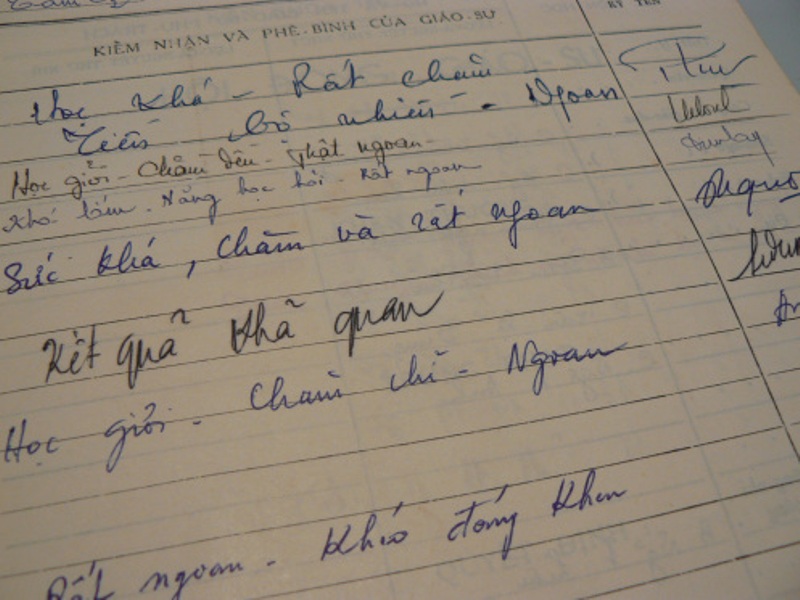 KIỂM NHẬN VÀ PHÊ-BÌNH CỦA GIÁO-SƯ
KÝ TÊN
Học khá - Rất chăm
Tiến bộ nhiều - Ngoan
Học giỏi - Chăm đều - Thật ngoan
Khá lắm - Năng học hỏi - Rất ngoan
Sức khá, chăm và rất ngoan
Kết quả khả quan
Học giỏi - Chăm chỉ - Ngoan
Rất ngoan - Khá đáng khen